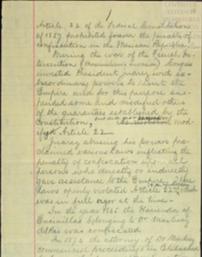 1
Article 22 of the Federal Constitution
of 1857 prohibited forever the penalty of
confiscation in the Mexican Republic.
During the war of the French In-
tervention (Maximilian's Invasion) Congress
invested President Juarez with ex-
traordinary powers to the
Empire and for this purpose sus-
pended some and modified others
of the guarantees established by the
Constitution,
Article 22
Juarez abusing his powers pro-
claimed various laws inflicting the
penalty of confiscation on all
persons who directly or indirectly
gave assistance to the Empire,
laws openly violated Article 22 which
was in full vigor at the time.
In the year 1865 the Hacienda of
belonging to Dr.
was confiscated.
In 187 the attorney of Dr.
commenced proceedings in